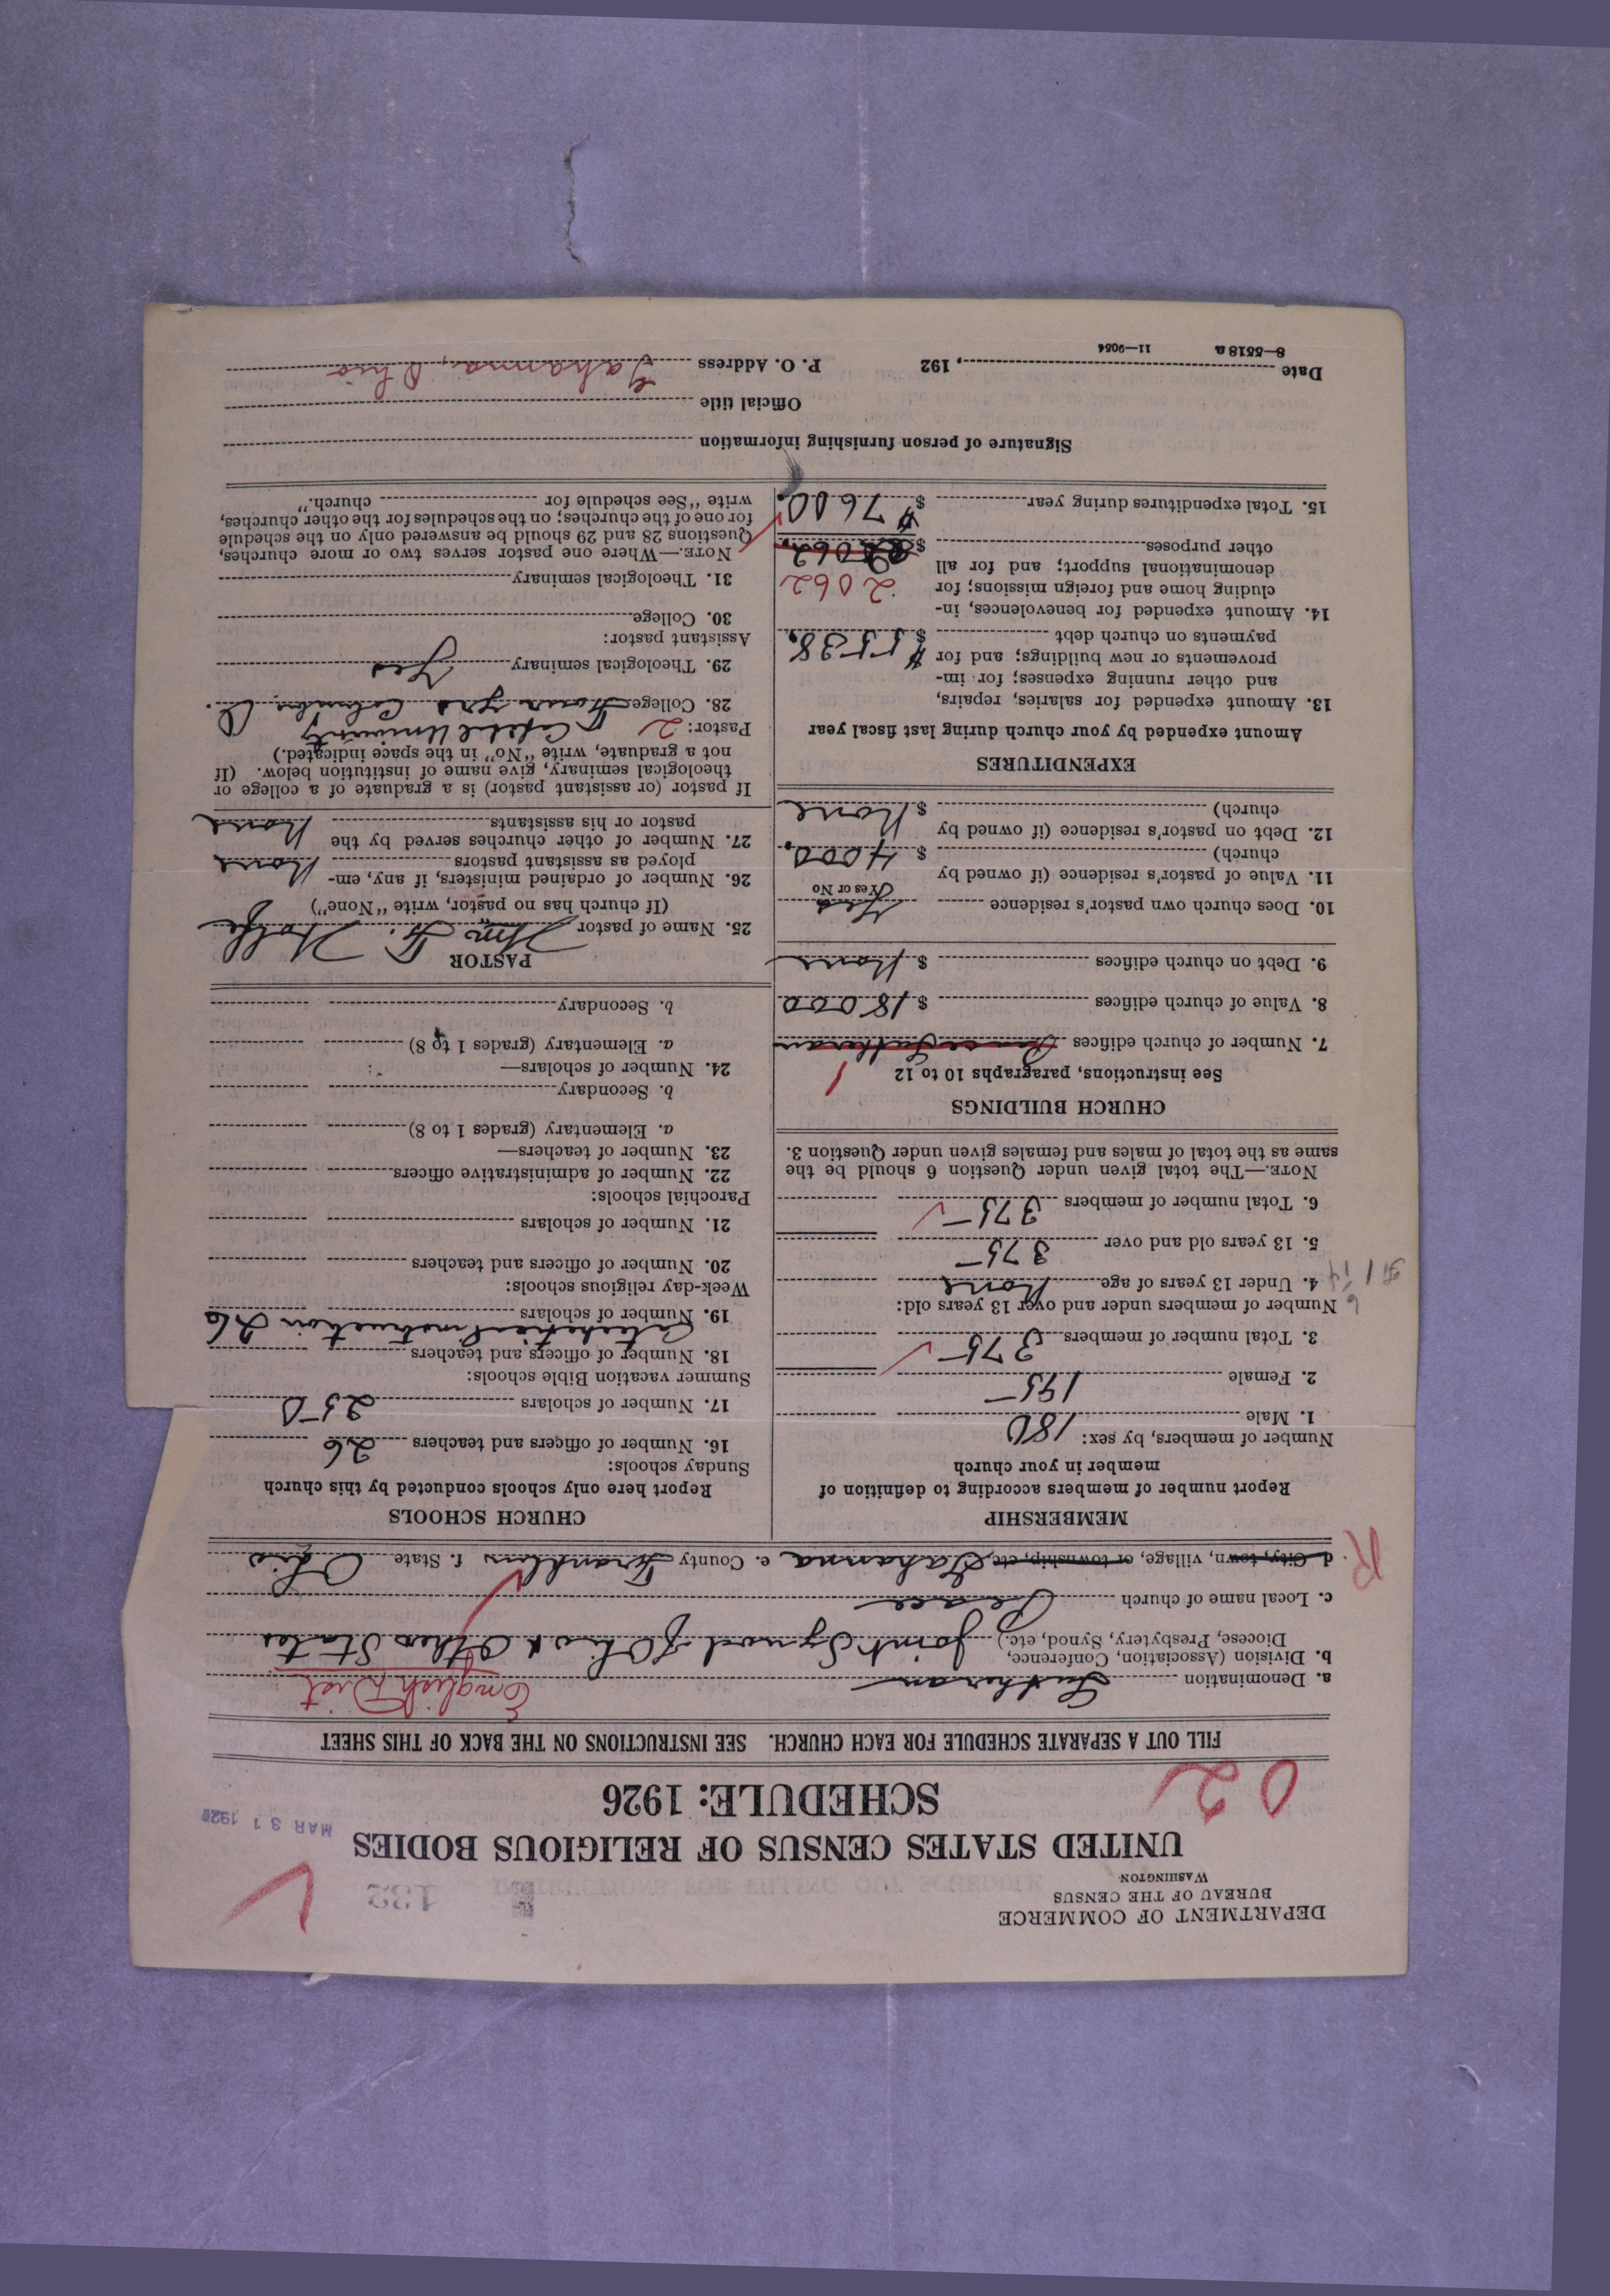 DEPARTMENT OF COMMERCE
BUREAU OF THE CENSUS
WASHINGTON
132
UNITED STATES CENSUS OF RELIGIOUS BODIES
MAR 31 192
SCHEDULE: 1926
02
FILL OUT A SEPARATE SCHEDULE FOR EACH CHURCH. SEE INSTRUCTIONS ON THE BACK OF THIS SHEET
a. Denomination Lutheran English Dist
b. Division (Association, Conference,
Diocese, Presbytery, Synod, etc.) Joint Synod of Ohio & Other States
c. Local name of church Peace
R
d. City, town, village, or township, etc. Gahanna e. County Franklin f. State Ohio
MEMBERSHIP
Report number of members according to definition of
member in your church
Number of members, by sex:
1. Male 180
2. Female 195
3. Total number of members 375
Number of members under and over 13 years old:
4. Under 13 years of age None
5. 13 years old and over 375
6. Total number of members 375
NOTE.—The total given under Question 6 should be the
same as the total of males and females given under Question 3.
CHURCH BUILDINGS
See instructions, paragraphs 10 to 12
1
7. Number of church edifices Peace Lutheran
8. Value of church edifices $ 18000
9. Debt on church edifices $ None
10. Does church own pastor's residence Yes
Yes or No
11. Value of pastor's residence (if owned by
church) $ 4000.
12. Debt on pastor's residence (if owned by
church) $ None
EXPENDITURES
Amount expended by your church during last fiscal year
13. Amount expended for salaries, repairs,
and other running expenses; for im-
provements or new buildings; and for
payments on church debt $ 5538.
14. Amount expended for benevolences, in-
cluding home and foreign missions; for
denominational support; and for all
other purposes $ 2062
2062
15. Total expenditures during year $ 7600.
CHURCH SCHOOLS
Report here only schools conducted by this church
Sunday schools:
16. Number of officers and teachers 26
17. Number of scholars 250
Summer vacation Bible schools:
18. Number of officers and teachers
Catechetical instruction 26
19. Number of scholars
Week-day religious schools:
20. Number of officers and teachers
21. Number of scholars
Parochial schools:
22. Number of administrative officers
23. Number of teachers—
a. Elementary (grades 1 to 8)
b. Secondary
24. Number of scholars—
a. Elementary (grades 1 to 8)
b. Secondary
PASTOR
25. Name of pastor Wm. F.
(If church has no pastor, write "None")
26. Number of ordained ministers, if any, em-
ployed as assistant pastors None
27. Number of other churches served by the
pastor or his assistants None
If pastor (or assistant pastor) is a graduate of a college or
theological seminary, give name of institution below. (If
not a graduate, write "No" in the space indicated.)
Pastor: 2 Capital University
28. College Four yrs Columbus, O.
29. Theological seminary Yes
Assistant pastor:
30. College
31. Theological seminary
NOTE.—Where one pastor serves two or more churches,
Questions 28 and 29 should be answered only on the schedule
for one of the churches; on the schedules for the other churches,
write "See schedule for church."
Signature of person furnishing information
Official title
Date , 192 P. O. Address Gahanna, Ohio
8—5518 a 11—9054